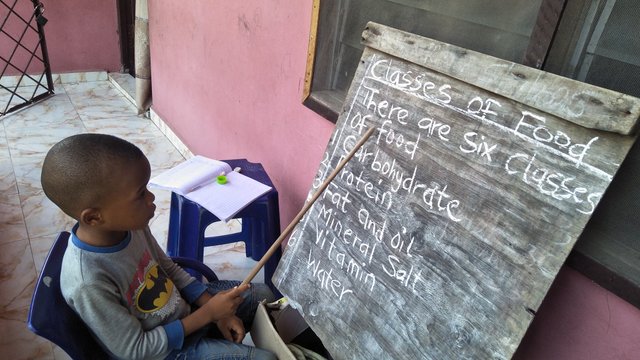 Classes of Food
There are six classes
of food
1 Carbohydrate
2 Protein
3 Fat and oil
4 Mineral Salt
5 Vitamin
6 Water